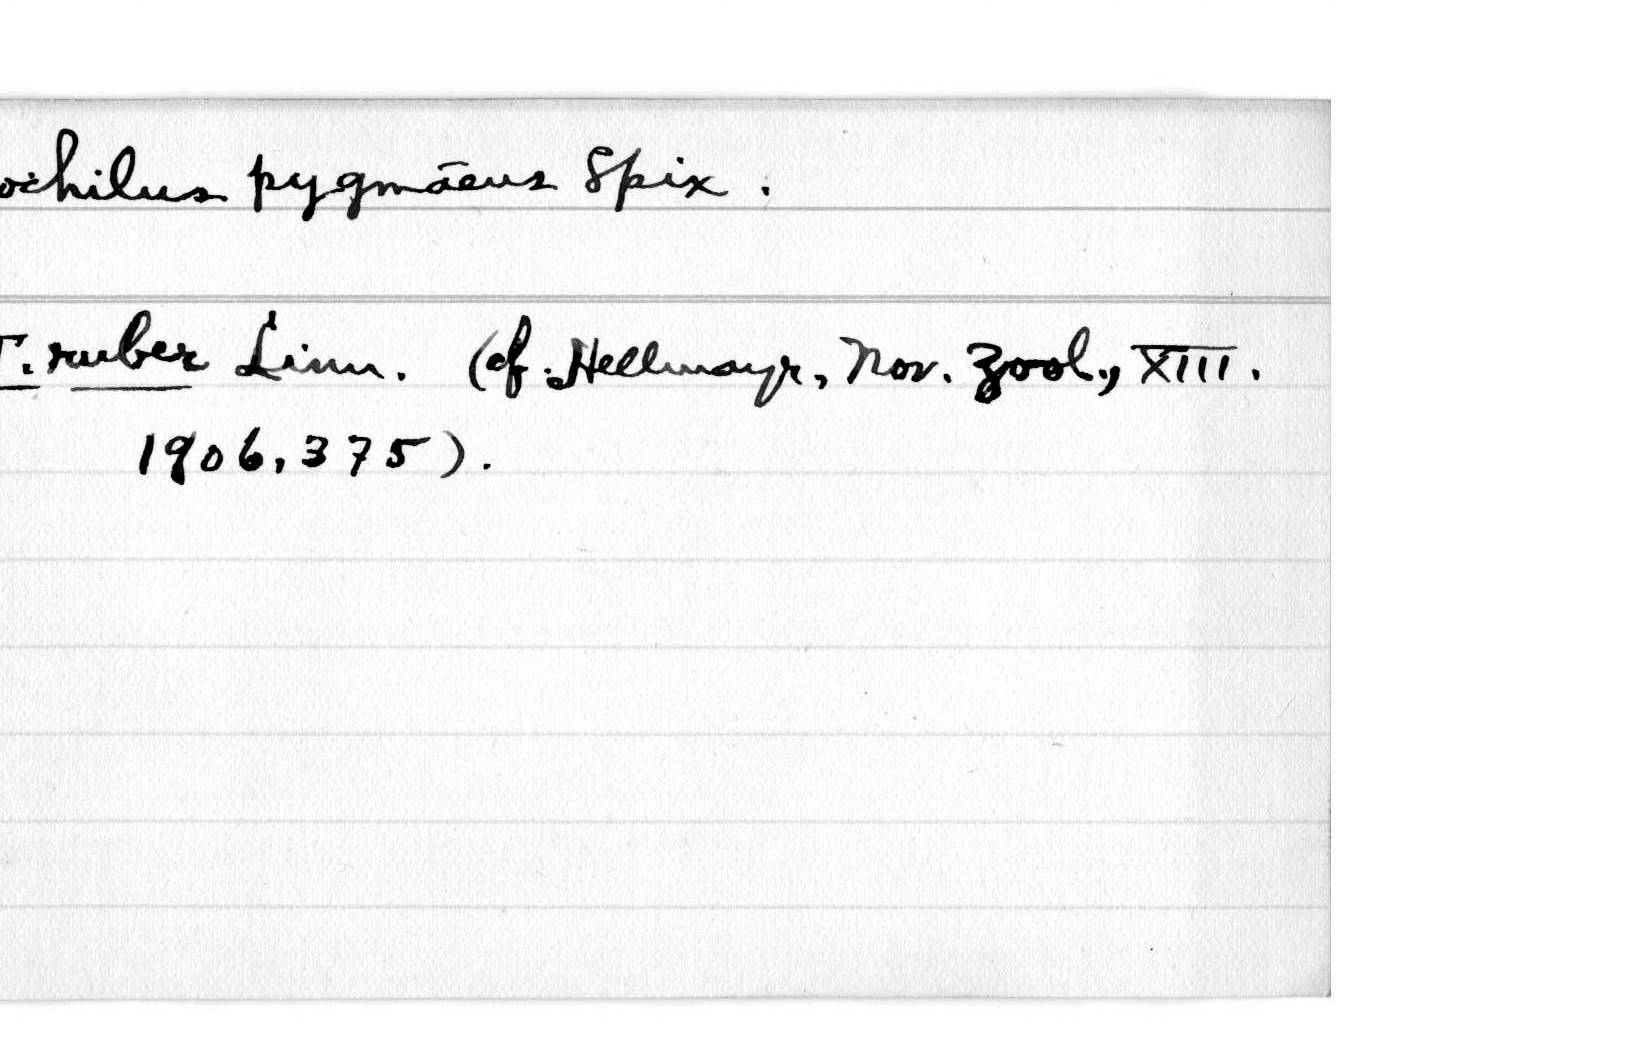 ochilus pygmāeus Spix.
T. ruber Linn. (cf. Hellmayr, Nov. Zool., XIII.
1906, 375).